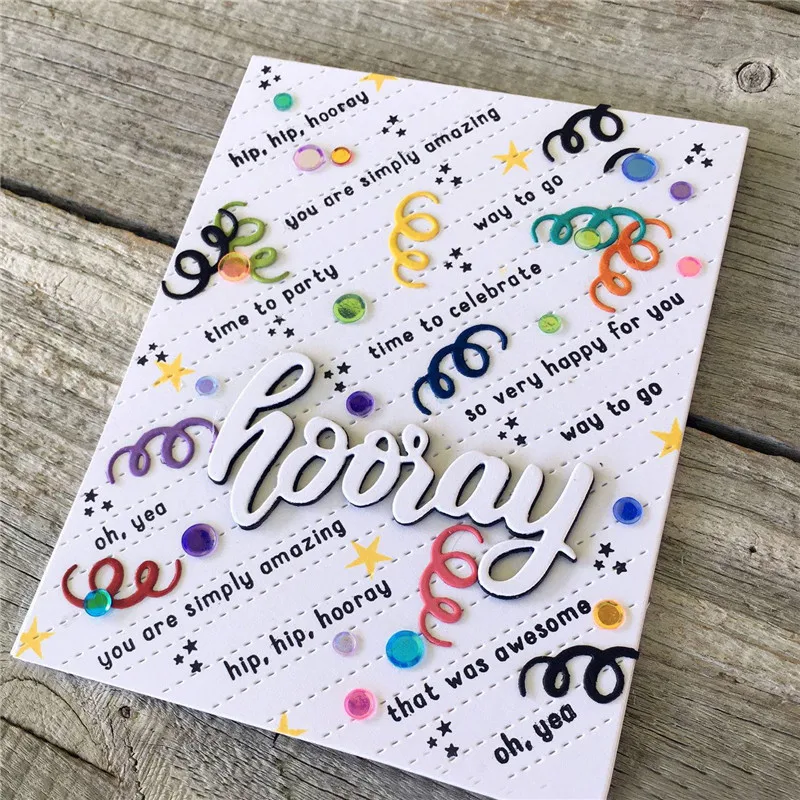 hip, hip, hooray
you are simply amazing
way to go
time to party
time to celebrate
so very happy for you
way to go
hooray
oh, yea
you are simply amazing
hip, hip, hooray
that was awesome
oh, yea